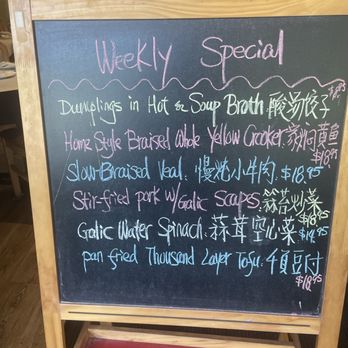 Weekly Special
Dumplings in Hot & Soup Broth 酸汤饺子
Home Style Braised Whole Yellow Croaker: 黄鱼 $18.95
Slow-Braised Veal: 慢炖小牛肉 $18.95
Stir-fried pork w/ Garlic scapes: 蒜苔炒菜 $18.95
Galic Water Spinach: 蒜茸空心菜
pan fried Thousand Layer Tofu: 千頁豆付
$18.95